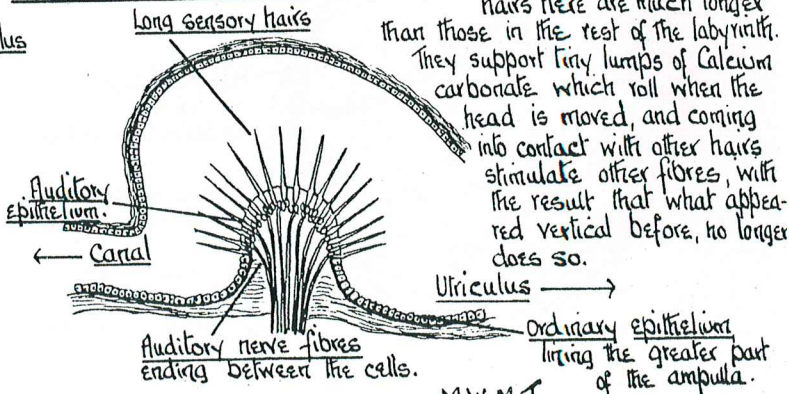 hairs here are much longer
than those in the rest of the labyrinth.
They support tiny lumps of Calcium
carbonate which roll when the
head is moved, and coming
into contact with other hairs
stimulate other fibres, with
the result that what appea-
red vertical before, no longer
does so.
lus
Long sensory hairs
Auditory
epithelium.
← Canal
Utriculus →
Auditory nerve fibres
ending between the cells.
Ordinary epithelium
lining the greater part
of the ampulla.